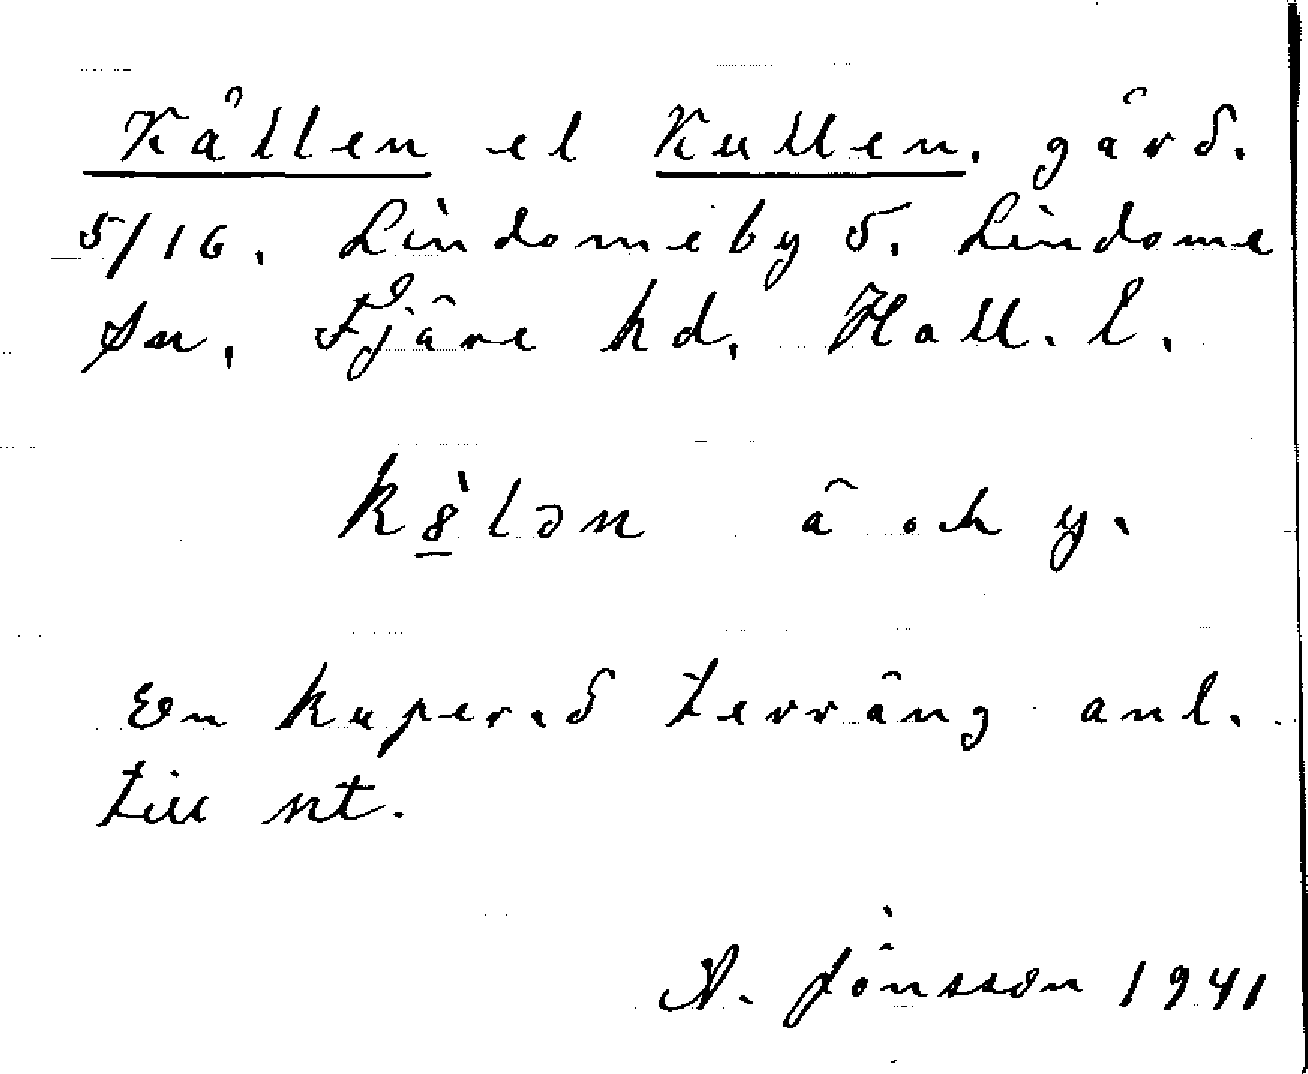 Kållen el Kullen. gård.
5/16. Lindomeby 5. Lindome
sn. Fjäre hd. Hall. l.
k8̲̀lən ä och y.
En kuperad terräng anl.
till nt.
A. Jönsson 1941